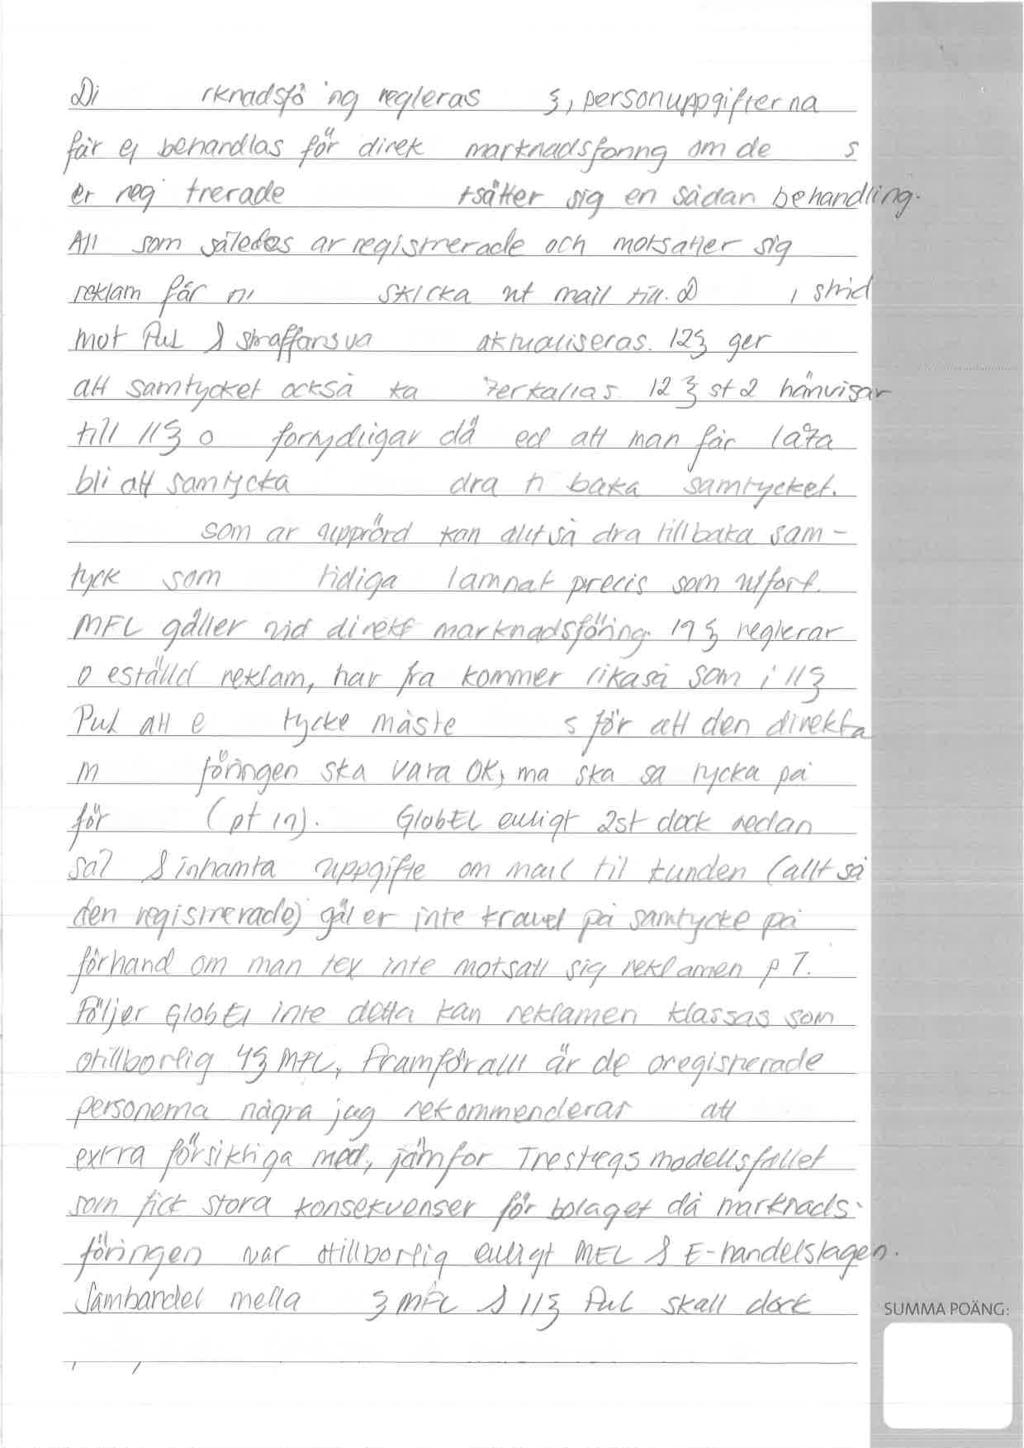 Di rknadsfö ng regleras §, personuppgifterna
får ej behandlas för direk marknadsföring om de s
er reg trerade tsätter sig en sådan behandling.
All som således är registrerade och motsätter sig
reklam får ni skicka ut mail till. D i strid
mot PuL & straffansva aktualiseras. 12§ ger
att samtycket också ka erkallas 12 § st 2 hänvisar
till 11§ o förtydligar då ed att man får låta
bli att samtycka dra ti baka samtycket.
som är upprörd kan alltså dra tillbaka sam-
tyck som tidiga lämnat precis som utfört.
MFL gäller vid direkt marknadsföring. 19 § reglerar
o eställd reklam, här fra kommer likaså som i 11§
PuL att e tycke måste s för att den direkta
m föringen ska vara OK, ma ska sa tycka på
för (pt in). GlobEL enligt 2st dock redan
säl & inhämta uppgifte om mail til kunden (alltså
den registrerade) gäl er inte kravet på samtycke på
förhand om man tex inte motsatt sig reklamen p 1.
Följer GlobEl inte detta kan reklamen klassas som
otillbörlig 4§ MFL, Framförallt är de oregistrerade
personerna några jag rekommenderar att
extra försiktiga med, jämför Trestegsmodellsfallet
som fick stora konsekvenser för bolaget då marknads-
föringen var otillbörlig enligt MFL & E-handelslagen.
Sambandet mella § MFL & 11§ PuL skall dock
SUMMA POÄNG: